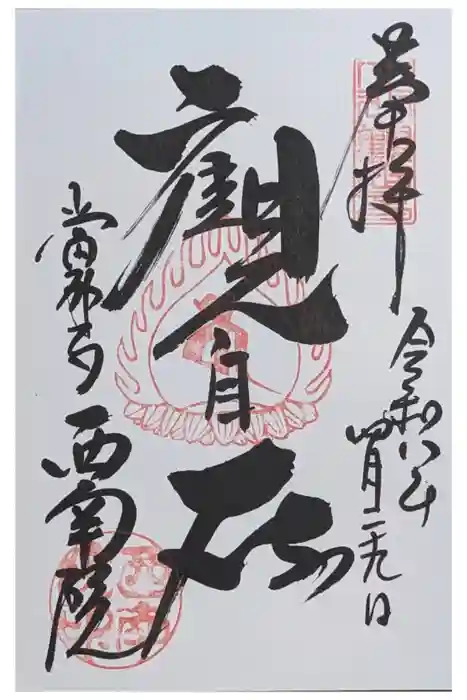 奉拝
令和八年
四月二十九日
觀自在
當麻寺 西南院